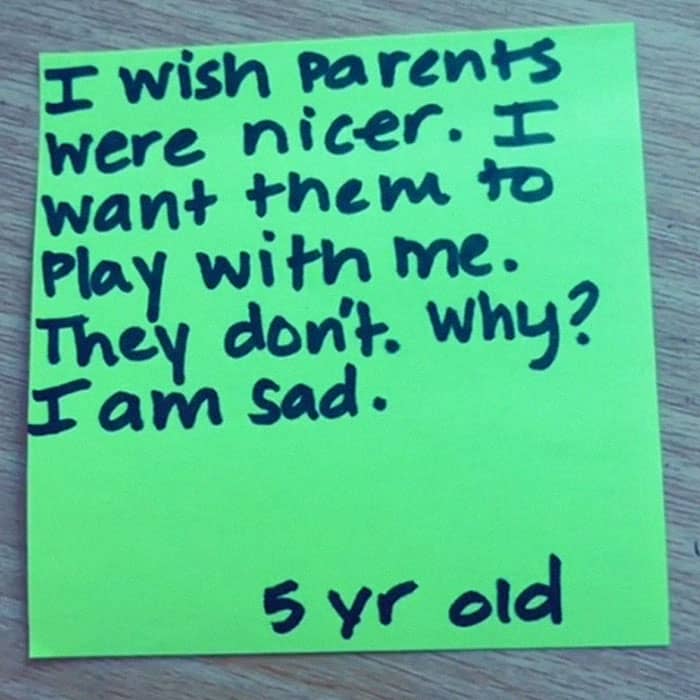 I wish parents
were nicer. I
want them to
play with me.
They don't. Why?
I am sad.
5 yr old